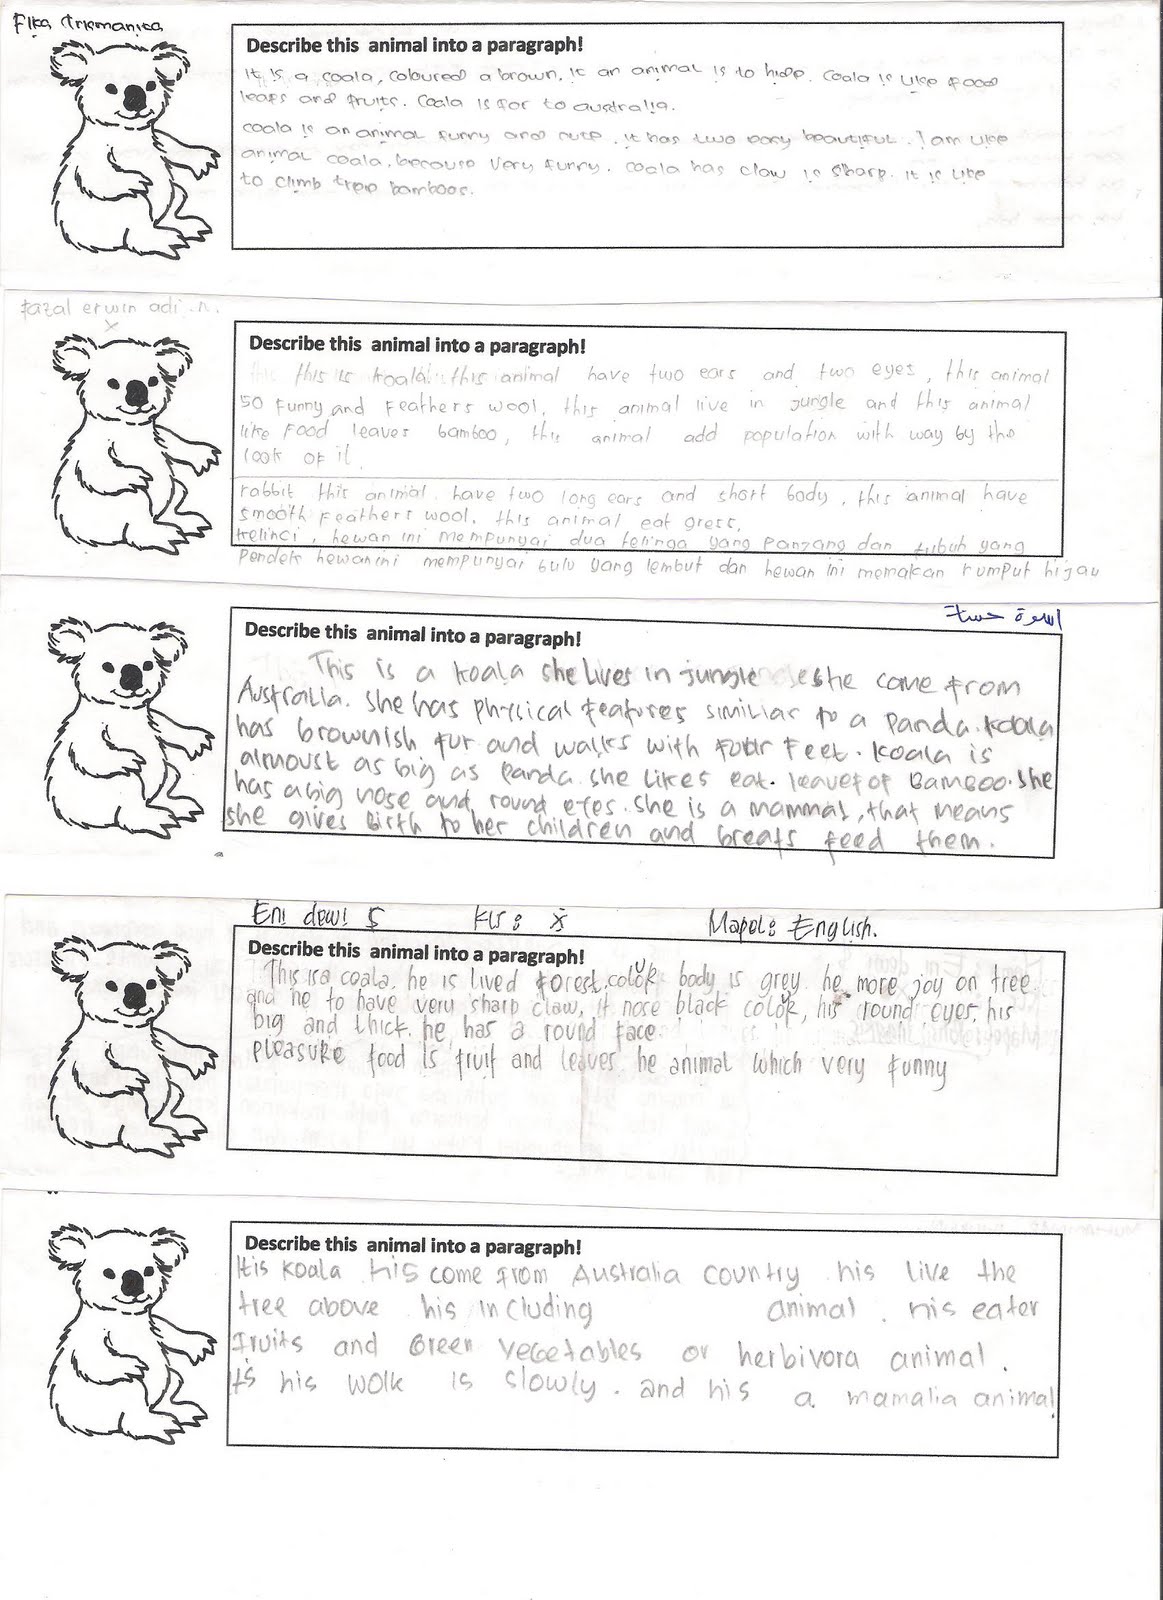 Fika trismanita
Describe this animal into a paragraph!
It is a coala, coloured a brown, it an animal is to hide. Coala is like food
leafs and fruits. Coala is for to australia.
coala is an animal funny and cute. it has two eary beautiful. I am like
animal coala, because very funny. coala has claw is sharp. it is like
to climb tree bamboos.
fazal erwin adi .n.
X
Describe this animal into a paragraph!
this is koala. this animal have two ears and two eyes, this animal
so funny and feathers wool, this animal live in jungle and this animal
like food leaves bamboo, this animal add population with way by the
look of it
rabbit this animal have two long ears and short body, this animal have
smooth feathers wool. this animal eat gress,
kelinci, hewan ini mempunyai dua telinga yang panzang dan tubuh yang
pendek hewan ini mempunyai bulu yang lembut dan hewan ini memakan rumput hijau
اسوة حسنة
Describe this animal into a paragraph!
This is a koala she lives in jungle she come from
Australia. she has physical features similiar to a panda. koala
has brownish fur and walks with four feet. koala is
almoust as big as panda. she likes eat. leavef of Bamboo. she
has a big nose and round eyes. she is a mammal, that means
she gives Birth to her children and breats feed them.
Eni dewi S Kls : X Mapel : English.
Describe this animal into a paragraph!
This is a coala. he is lived forest, colour body is grey. he more joy on tree
and he to have very sharp claw, it nose black colour, his round eyes, his
big and thick. he has a round face.
pleasure food is fruit and leaves he animal which very funny
Describe this animal into a paragraph!
His koala his come from Australia country his live the
tree above his including animal. his eater
fruits and Green vegetables or herbivora animal.
its his wolk is slowly. and his a mamalia animal